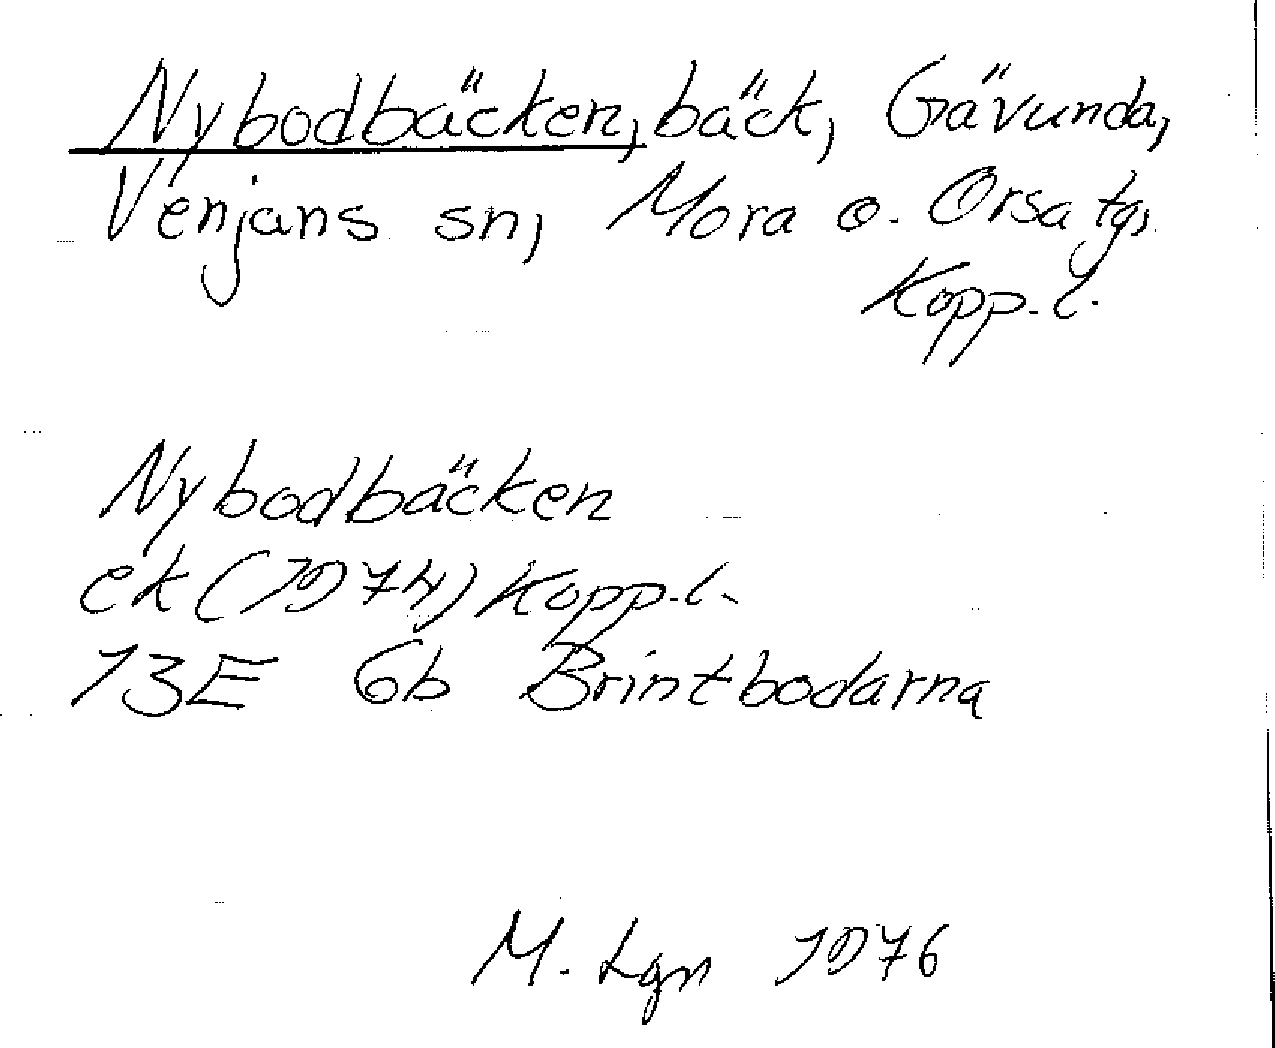 Nybodbäcken, bäck, Gävunda,
Venjans sn, Mora o. Orsa tgs
Kopp. l.
Nybodbäcken
ek (1974) Kopp. l.
13E 6b Brintbodarna
M. Lgn 1976